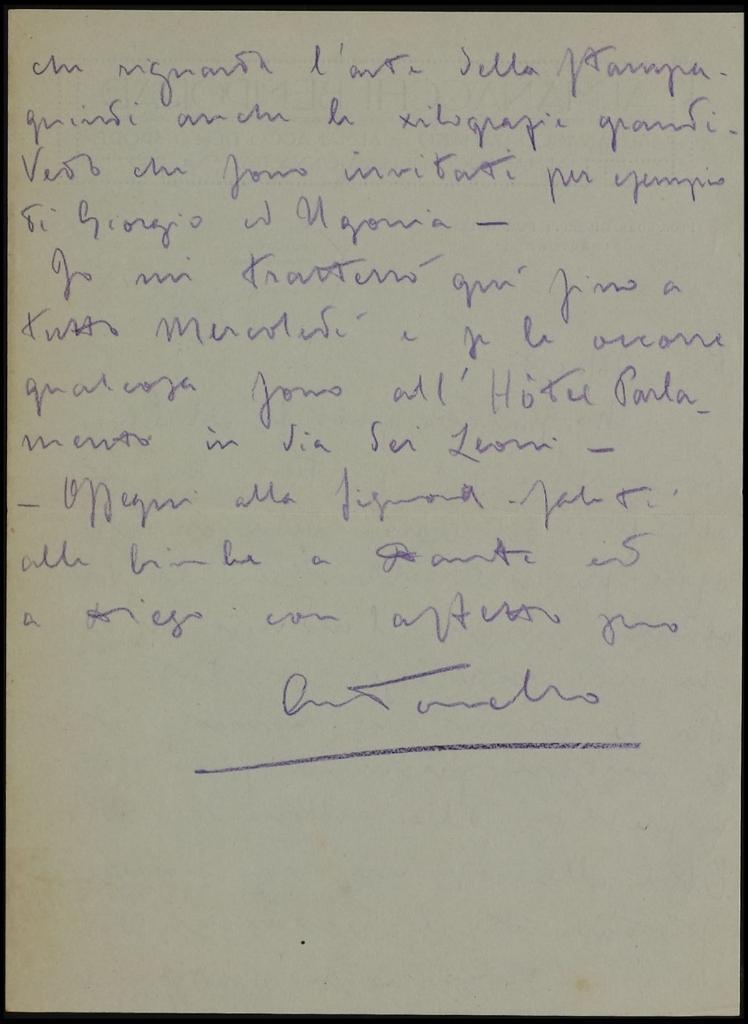 che riguarda l'arte della stampa -
quindi anche le xilografie grandi.
Vedo che sono invitati per esempio
di Giorgio ed Ugonia —
Io mi tratterrò quì sino a
tutto Mercoledì e se le occorre
qualcosa sono all'Hôtel Parla-
mento in via dei Leoni —
— Ossequi alla Signora - saluti
alle bimbe a Dante ed
a Diego con affetto suo
Antonello